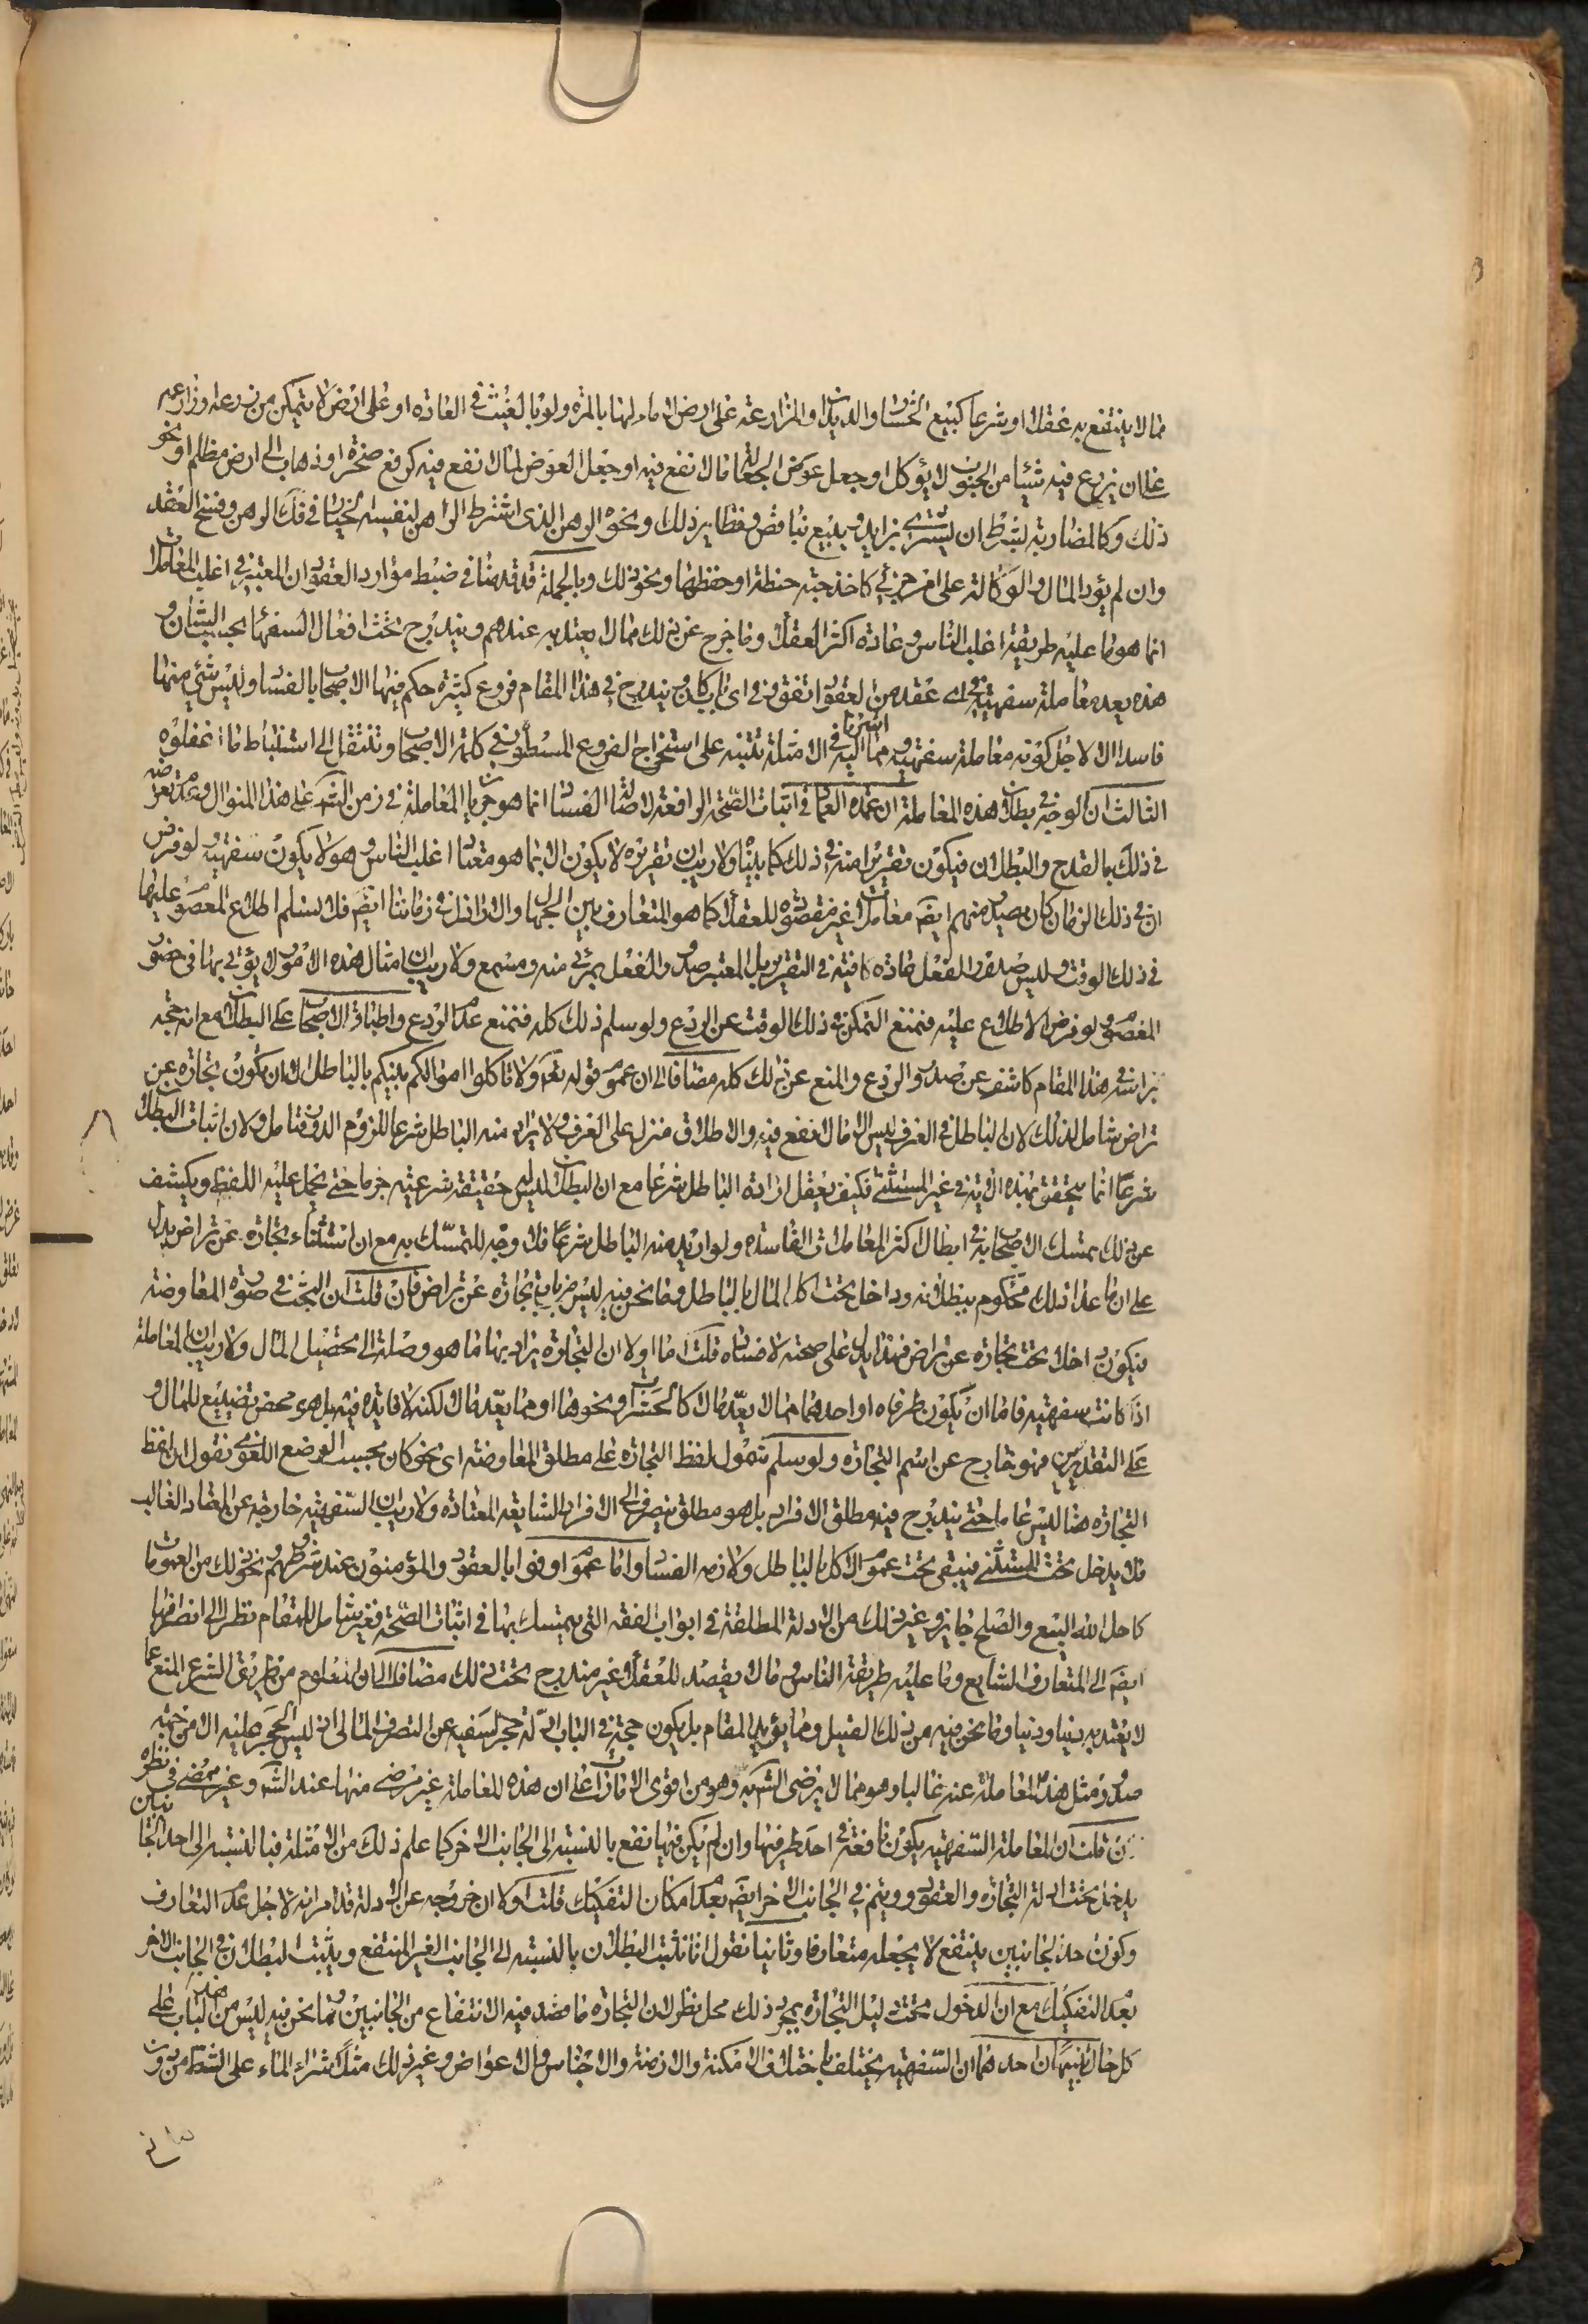 مما لا ينتفع به عقلا او شرعا كبيع الحشرات والديدان او المزارعة على ارض لا ماء لها بالمرة ولو بالغيث في العادة او على ارض لا يتمكن من زرعه وزارعه
على ان يزرع فيه شيئا من الحبوب لا يؤكل او جعل عوض الجعالة مالا نفع فيه او جعل العوض لما لا نفع فيه كرفع صخرة او ذهاب الى ارض مظلم او نحو
ذلك وكالمضاربة بشرط ان يشتري بزايد ويبيع بناقص ونظاير ذلك ونحوه الرهن الذي اشترط الراهن لنفسه الخيار في فك الرهن وفسخ العقد
وان لم يؤد المال والوكالة على امر جزئي كاخذ حبة حنطة او حفظها ونحو ذلك وبالجملة قد قدمنا في ضبط موارد العقود ان المعتبر في اغلب المعاملات
انما هو ما عليه طريقة اغلب الناس وعادة اكثر العقلاء وما خرج عن ذلك مما لا يعتد به عندهم ويندرج تحت افعال السفهاء بحسب الشأن و
هذه يعد معاملة سفهية في اي عقد من العقود اتفق وفي اي باب كان ويندرج في هذا المقام فروع كثيرة حكم فيها الاصحاب بالفساد وليس شئ منها
فاسدا الا لاجل كونه معاملة سفهية ومما اشرنا اليه في الامثلة تتنبه على استخراج الفروع المسطورة في كلمة الاصحاب وتنتقل الى استنباط ما اغفلوه
الثالث ان الوجه في بطلان هذه المعاملة ان عمدة العمل في اثبات الصحة الرافعة لاصالة الفساد انما هو جريان المعاملة في زمن الشرع على هذا المنوال وعدم تعرضه
في ذلك بالقدح والبطلان فيكون تقريرا منه في ذلك كما بينا ولا ريب ان تقريره لا يكون الا بما هو معتاد اغلب الناس وهو لا يكون سفهية ولو فرض
ان في ذلك الزمان كان يصدر منهم ايضا معاملات غير مقصودة للعقلاء كما هو المتعارف بين الجهال والاراذل في زماننا ايضا فلا نسلم اطلاع المعصوم عليها
في ذلك الوقت وليس صدور الفعل عادة كافية في التقرير بل المعتبر صدور الفعل بمرئى منه ومسمع ولا ريب ان امثال هذه الامور لا يؤتى بها في حضور
المعصوم ولو فرض الاطلاع عليه فنمنع التمكن في ذلك الوقت عن الردع ولو سلم ذلك كله فنمنع عدم الردع واطباق الاصحاب على البطلان مع انه حجة
براسه في هذا المقام كاشف عن صدور الردع والمنع عن ذلك كله مضافا الى ان عموم قوله تعالى ولا تاكلوا اموالكم بينكم بالباطل الا ان تكون تجارة عن
تراض شامل لذلك لان الباطل في العرف ليس الا مالا نفع فيه والاطلاق منزل على العرف ولا يراد منه الباطل شرعا للزوم الدور فتامل ولان اثبات البطلان
شرعا انما يتحقق بهذه الاية في غير المستثنى فكيف يعقل ارادة الباطل شرعا مع ان البطلان ليس له حقيقة شرعية جزما حتى يحمل عليه اللفظ ويكشف
عن ذلك تمسك الاصحاب به في ابطال اكثر المعاملات الفاسدة ولو اريد منه الباطل شرعا فلا وجه للتمسك به مع ان استثناء تجارة عن تراض يدل
على ان ما عدا ذلك محكوم ببطلانه وداخل تحت اكل المال بالباطل وما نحن فيه ليس من باب تجارة عن تراض فان قلت ان البحث في صورة المعاوضة
فيكون داخلا تحت تجارة عن تراض فهذا يدل على صحته لا فساده قلت اما اولا ان التجارة يراد بها ما هو وصلة الى تحصيل المال ولا ريب ان المعاملة
اذا كانت سفهية فاما ان يكون طرفاه او احدهما مما لا يعد مالا كالحشرات ونحوها او مما يعد مالا لكنه لا فايدة فيه بل هو محض تضييع للمال و
على التقديرين فهو خارج عن اسم التجارة ولو سلم شمول لفظ التجارة على مطلق المعاوضة اي نحو كان بحسب الوضع اللغوي نقول ان لفظ
التجارة هنا ليس عاما حتى يندرج فيه مطلق الافراد بل هو مطلق ينصرف الى الافراد الشايعة المعتادة ولا ريب ان السفهية خارجة عن المعتاد الغالب
فلا يدخل تحت المستثنى فيبقى تحت عموم الاكل بالباطل ولازمه الفساد واما عموم اوفوا بالعقود والمؤمنون عند شروطهم ونحو ذلك من العمومات
كاحل الله البيع والصلح جايز وغير ذلك من الادلة المطلقة في ابواب الفقه التي يتمسك بها في اثبات الصحة فغير شامل للمقام نظرا الى انصرافها
ايضا الى المتعارف الشايع وما عليه طريقة الناس وما لا يقصد للعقلاء غير مندرج تحت ذلك مضافا الى ان المعلوم من طريق الشرع المنع عما
لا يعتد به دينا ودنيا وما نحن فيه من ذلك القبيل ومما يؤيد المقام بل يكون حجة في الباب ادلة حجر السفيه عن التصرف المالى اذ ليس الحجر عليه الا من جهة
صدور مثل هذه المعاملة عنه غالبا وهو مما لا يرضى الشرع به وهو من اقوى الامارات على ان هذه المعاملة غير مرضى منها عند الشرع وغير ممضى في نظره
فان قلت ان المعاملة السفهية يكون نافعة في احد طرفيها وان لم يكن فيها نفع بالنسبة الى الجانب الاخر كما علم ذلك من الامثلة فبالنسبة الى احد الجانبين
يدخل تحت ادلة التجارة والعقود ويتم في الجانب الاخر ايضا بعدم امكان التفكيك قلت اولا ان خروجه عن الادلة قد مر انه لاجل عدم التعارف
وكون احد الجانبين ينتفع لا يجعله متعارفا وثانيا نقول انا نثبت البطلان بالنسبة الى الجانب الغير المنتفع ويثبت البطلان في الجانب الاخر
بعدم التفكيك مع ان الدخول تحت دليل التجارة بمجرد ذلك محل نظر لان التجارة ما قصد فيه الانتفاع من الجانبين وما نحن فيه ليس من هذا الباب على
كل حال تنبيهان احدهما ان السفهية يختلف باختلاف الامكنة والازمنة والاجناس والاعواض وغير ذلك مثلا شراء الماء على الشط من دون